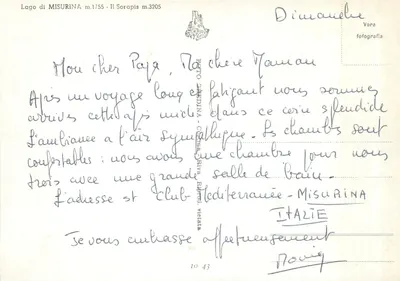 Lago di MISURINA m. 1755 - Il Sorapis m. 3205
Dimanche
Vera
fotografia
Mon cher Papa, Ma chère Maman
Après un voyage long et fatigant nous sommes
arrivés cet après midi dans ce coin splendide
L'ambiance a l'air sympathique. Les chambres sont
confortables : nous avons une chambre pour nous
trois avec une grande salle de bain.
L'adresse est Club Méditerranée - MISURINA
ITALIE
Je vous embrasse affectueusement